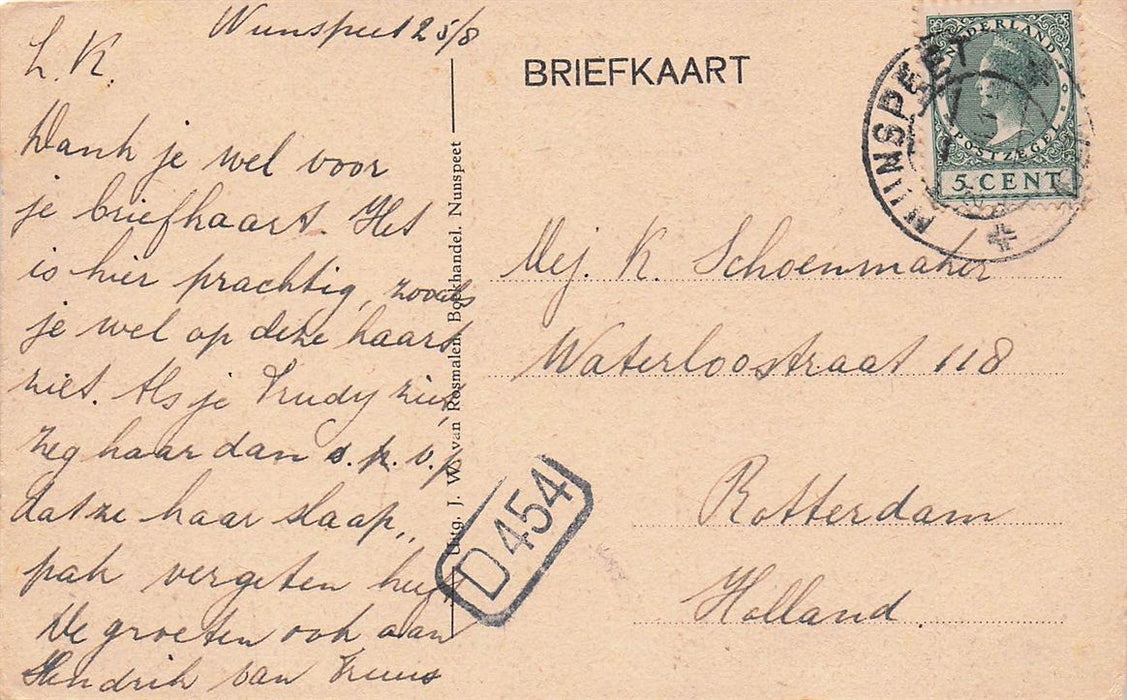 Nunspeet 25/8
L. K.
Dank je wel voor
je briefkaart. Het
is hier prachtig, zooals
je wel op deze kaart
ziet. Als je Trudy ziet,
zeg haar dan s.p.v.p
dat ze haar slaap„
pak vergeten heeft
De groeten ook aan
Hendrik van Truus
Uitg. J. W. van Rosmalen, Boekhandel. Nunspeet
BRIEFKAART
NEDERLAND
POSTZEGEL
5 CENT
NUNSPEET
Mej. K. Schoenmaker
Waterloostraat 118
Rotterdam
Holland.
D454